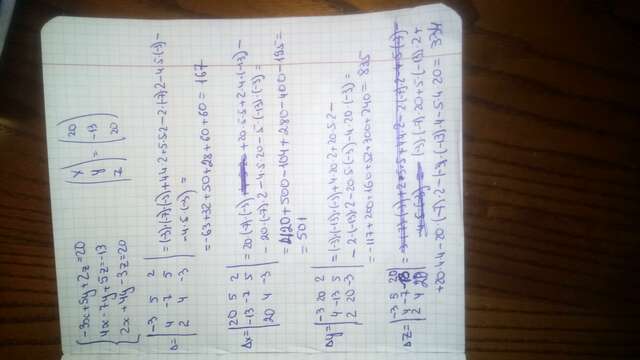 {-3x+5y+2z=20
4x-7y+5z=-13
2x+4y-3z=20
(x y z) = (20 -13 20)
Δ= |-3 5 2
4 -7 5
2 4 -3| = (-3)·(-7)·(-3)+4·4·2+5·5·2-2·(-7)·2-4·5·(-3)-
-4·5·(-3)=
=-63+32+50+28+60+60=167
Δx= |20 5 2
-13 -7 5
20 4 -3| = 20·(-7)·(-3) +20·5·5+2·4·(-13)-
-20·(-7)·2-4·5·20-5·(-13)·(-3)=
=420+500-104+280-400-195=
=501
Δy= |-3 20 2
4 -13 5
2 20 -3| =(-3)(-13)(-3)+4·20·2+20·5·2-
-2·(-13)·2-20·5·(-3)-4·20·(-3)=
=-117+200+160+52+300+240=835
Δz= |-3 5 20
4 -7 -13
2 4 20| =
(-3)·(-7)·20+5·(-13)·2+
+20·4·4-20·(-7)·2-(-3)·(-13)·4-5·4·20= 334